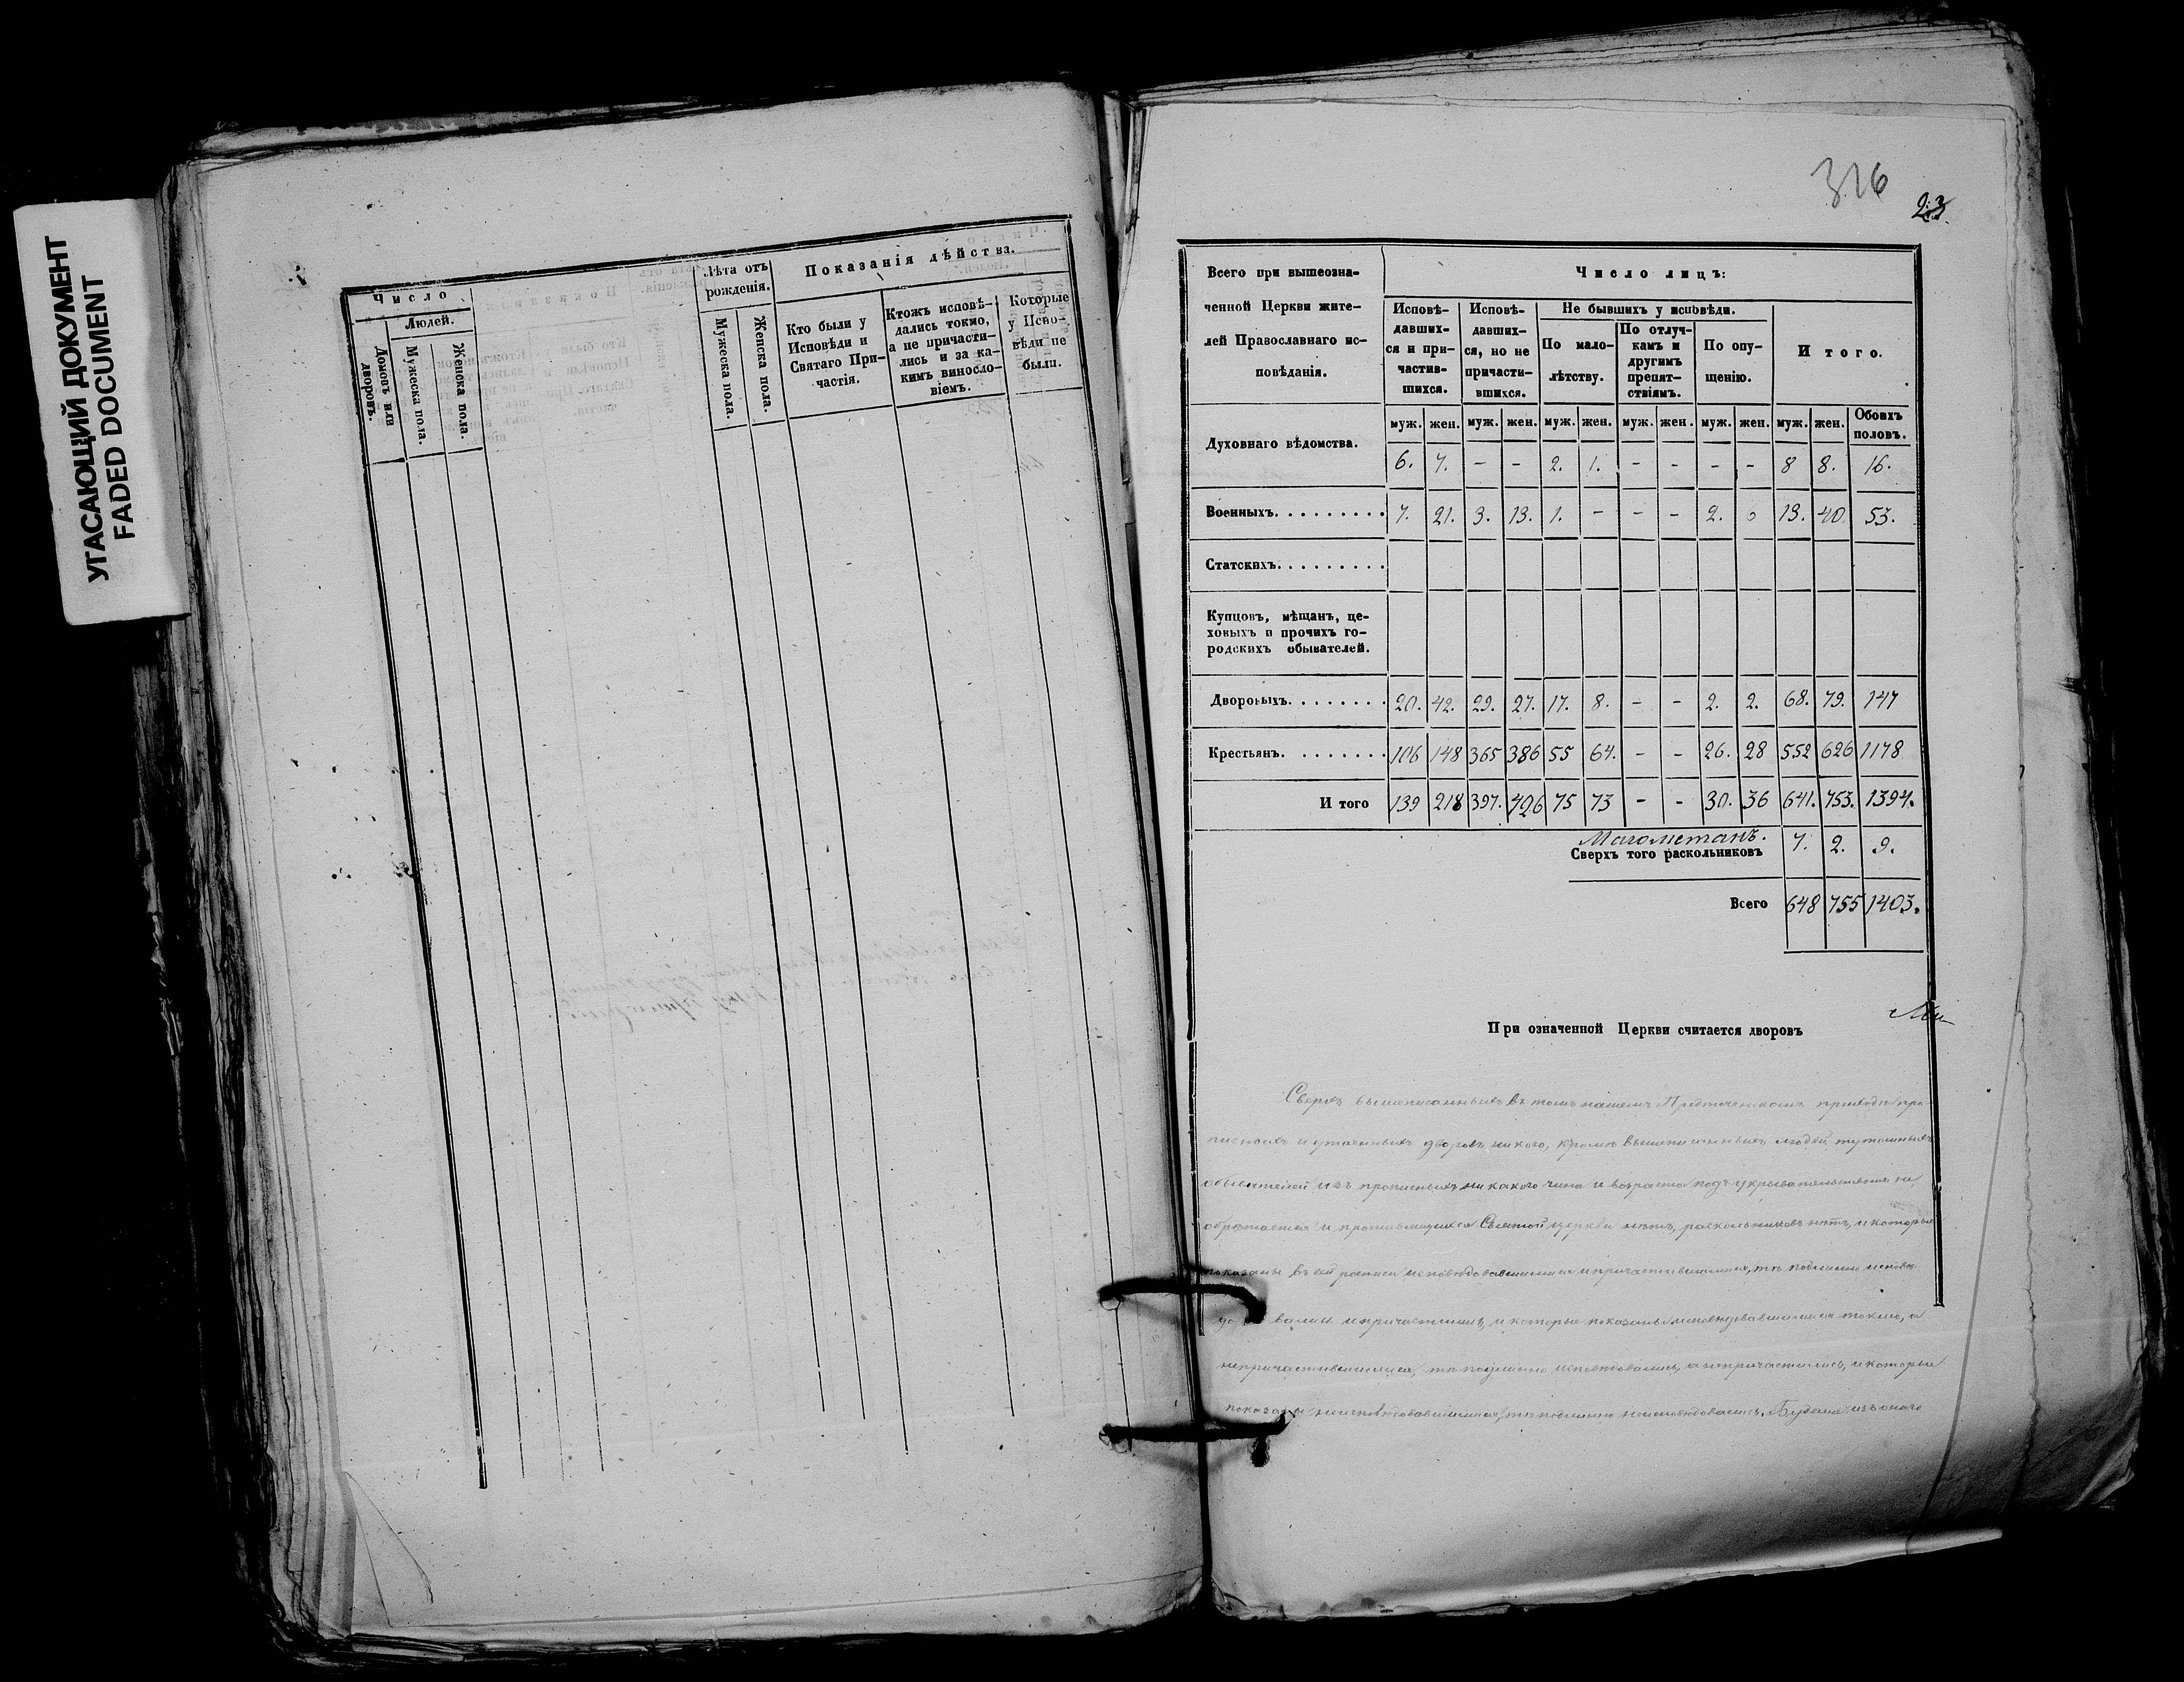 УГАСАЮЩИЙ ДОКУМЕНТ
FADED DOCUMENT
Число
Людей.
Домовъ или дворовъ.
Мужеска пола.
Женска пола.
Лѣта отъ рожденія.
Мужеска пола.
Женска пола.
Показанія дѣйства.
Кто были у
Исповѣди и
Святаго При-
частія.
Ктожъ исповѣ-
дались токмо,
а не причасти-
лись и за ка-
кимъ виносло-
віемъ.
Которые
у Испо-
вѣди не
были.
316
23.
Всего при вышеозна-
ченной Церкви жите-
лей Православнаго ис-
повѣданія.
Число лицъ:
Исповѣ-
давших-
ся и при-
частив-
шихся.
Исповѣ-
давших-
ся, но не
причасти-
вшихся.
Не бывшихъ у исповѣди.
По мало-
лѣтству.
По отлуч-
камъ и
другимъ
препят-
ствіямъ.
По опу-
щенію.
Итого.
муж. жен. муж. жен. муж. жен. муж. жен. муж. жен. муж. жен. Обоихъ половъ.
Духовнаго вѣдомства. 6. 7. - - 2. 1. - - - - 8 8. 16.
Военныхъ. 7. 21. 3. 13. 1. - - - 2. 13. 40. 53.
Статскихъ.
Купцовъ, мѣщанъ, це-
ховыхъ и прочихъ го-
родскихъ обывателей.
Дворовыхъ. 20. 42. 29. 27. 17. 8. - - 2. 2. 68. 79. 147
Крестьянъ. 106 148 365 386 55 64. - - 26. 28 552 626 1178
И того 139 218 397. 426 75 73 - - 30. 36 641. 753. 1394.
Магометанъ. 7. 2. 9.
Сверхъ того раскольниковъ
Всего 648 755 1403.
При означенной Церкви считается дворовъ
Сверхъ вышеписанныхъ въ томъ нашемъ Предтеченскомъ приходѣ про-
писныхъ и утаенныхъ дворовъ, никого, кромѣ вышеписанныхъ людей тутошныхъ
обывателей изъ прописныхъ никакого чина и возраста подъ укрывательствомъ не
обрѣтается и противящихся Святой церкви нѣтъ, раскольниковъ нѣтъ, и которые
показаны въ сей росписи исповѣдовавшимися и причастившимися, тѣ подлинно исповѣ-
вались и причастились, и которые показаны исповѣдовавшимися токмо, а
непричастившимися, тѣ подлинно исповѣдовались, а непричастились, и которые
показаны неисповѣдовавшимися, тѣ подлинно неисповѣдовались. Буде изъ оного